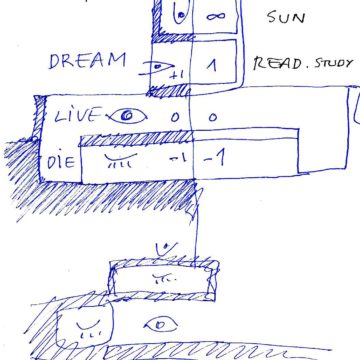 ∞ SUN
DREAM +1 1 READ. STUDY
LIVE 0 0
DIE -1 -1